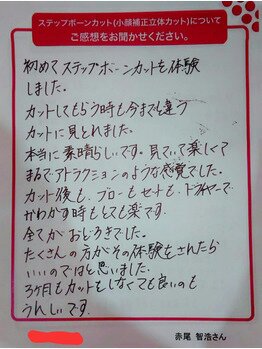 ステップボーンカット(小顔補正立体カット)について
ご感想をお聞かせください。
初めてステップボーンカットを体験
しました。
カットしてもらう時も今までも違う
カットに見とれました。
本当に素晴らしいです。見ていて楽しくて
まるでアトラクションのような感覚でした。
カット後も、ブローもセットも、ドライヤーで
かわかす時もとても楽です。
全てがおどろきでした。
たくさんの方がその体験をされたら
いいのではと思いました。
3ヶ月もカットもしなくても良いのも
うれしいです。
赤尾 智浩さん